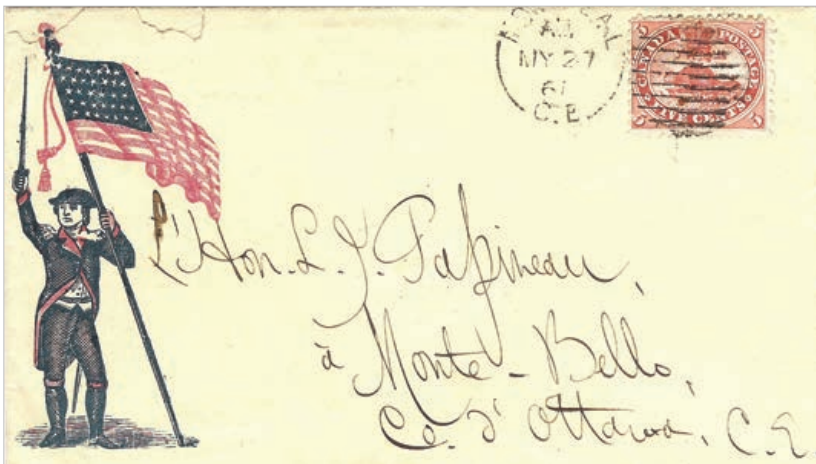 MONTREAL
AM
MY 27
61
C.E
5 CANADA POSTAGE 5
5 FIVE CENTS 5
L'Hon. L. J. Papineau,
à Monte-Bello,
Co. d'Ottawa, C.E